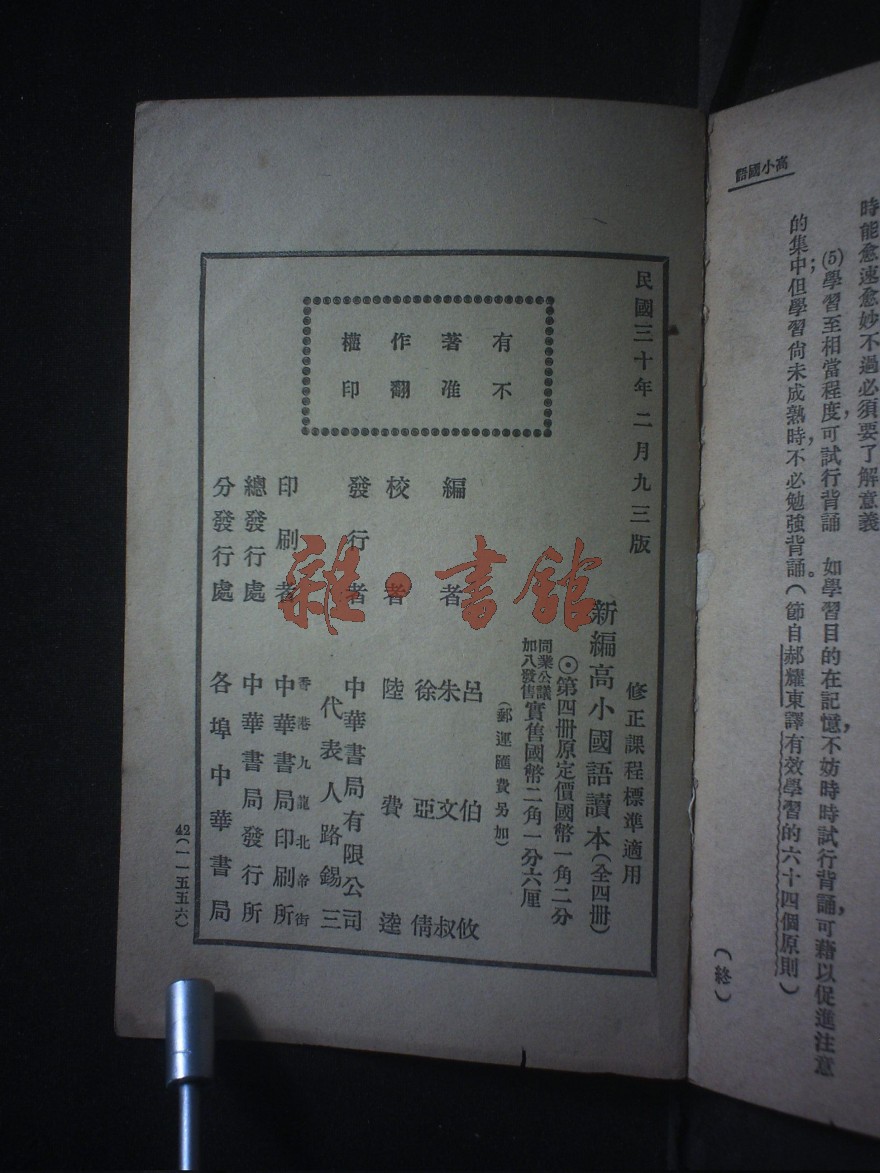 高小國語
時能愈速愈妙不過必須要了解意義
(5)學習至相當程度,可試行背誦 如學習目的在記憶,不妨時時試行背誦,可藉以促進注意
的集中;但學習尙未成熟時,不必勉強背誦。(節自郝耀東譯有效學習的六十四個原則)
(終)
民國三十年二月九三版
有著作權
不准翻印
修正課程標準適用
新編高小國語讀本(全四册)
⊙第四册原定價國幣一角二分
同業公議加八發售實售國幣二角一分六厘
(郵運匯費另加)
編者 呂伯攸
朱文叔
徐亞倩
校者 陸費逵
發行者 中華書局有限公司
代表人路錫三
印刷者 香港九龍北帝街
中華書局印刷所
總發行處 中華書局發行所
分發行處 各埠中華書局
42(一一五五六)
雜·書館